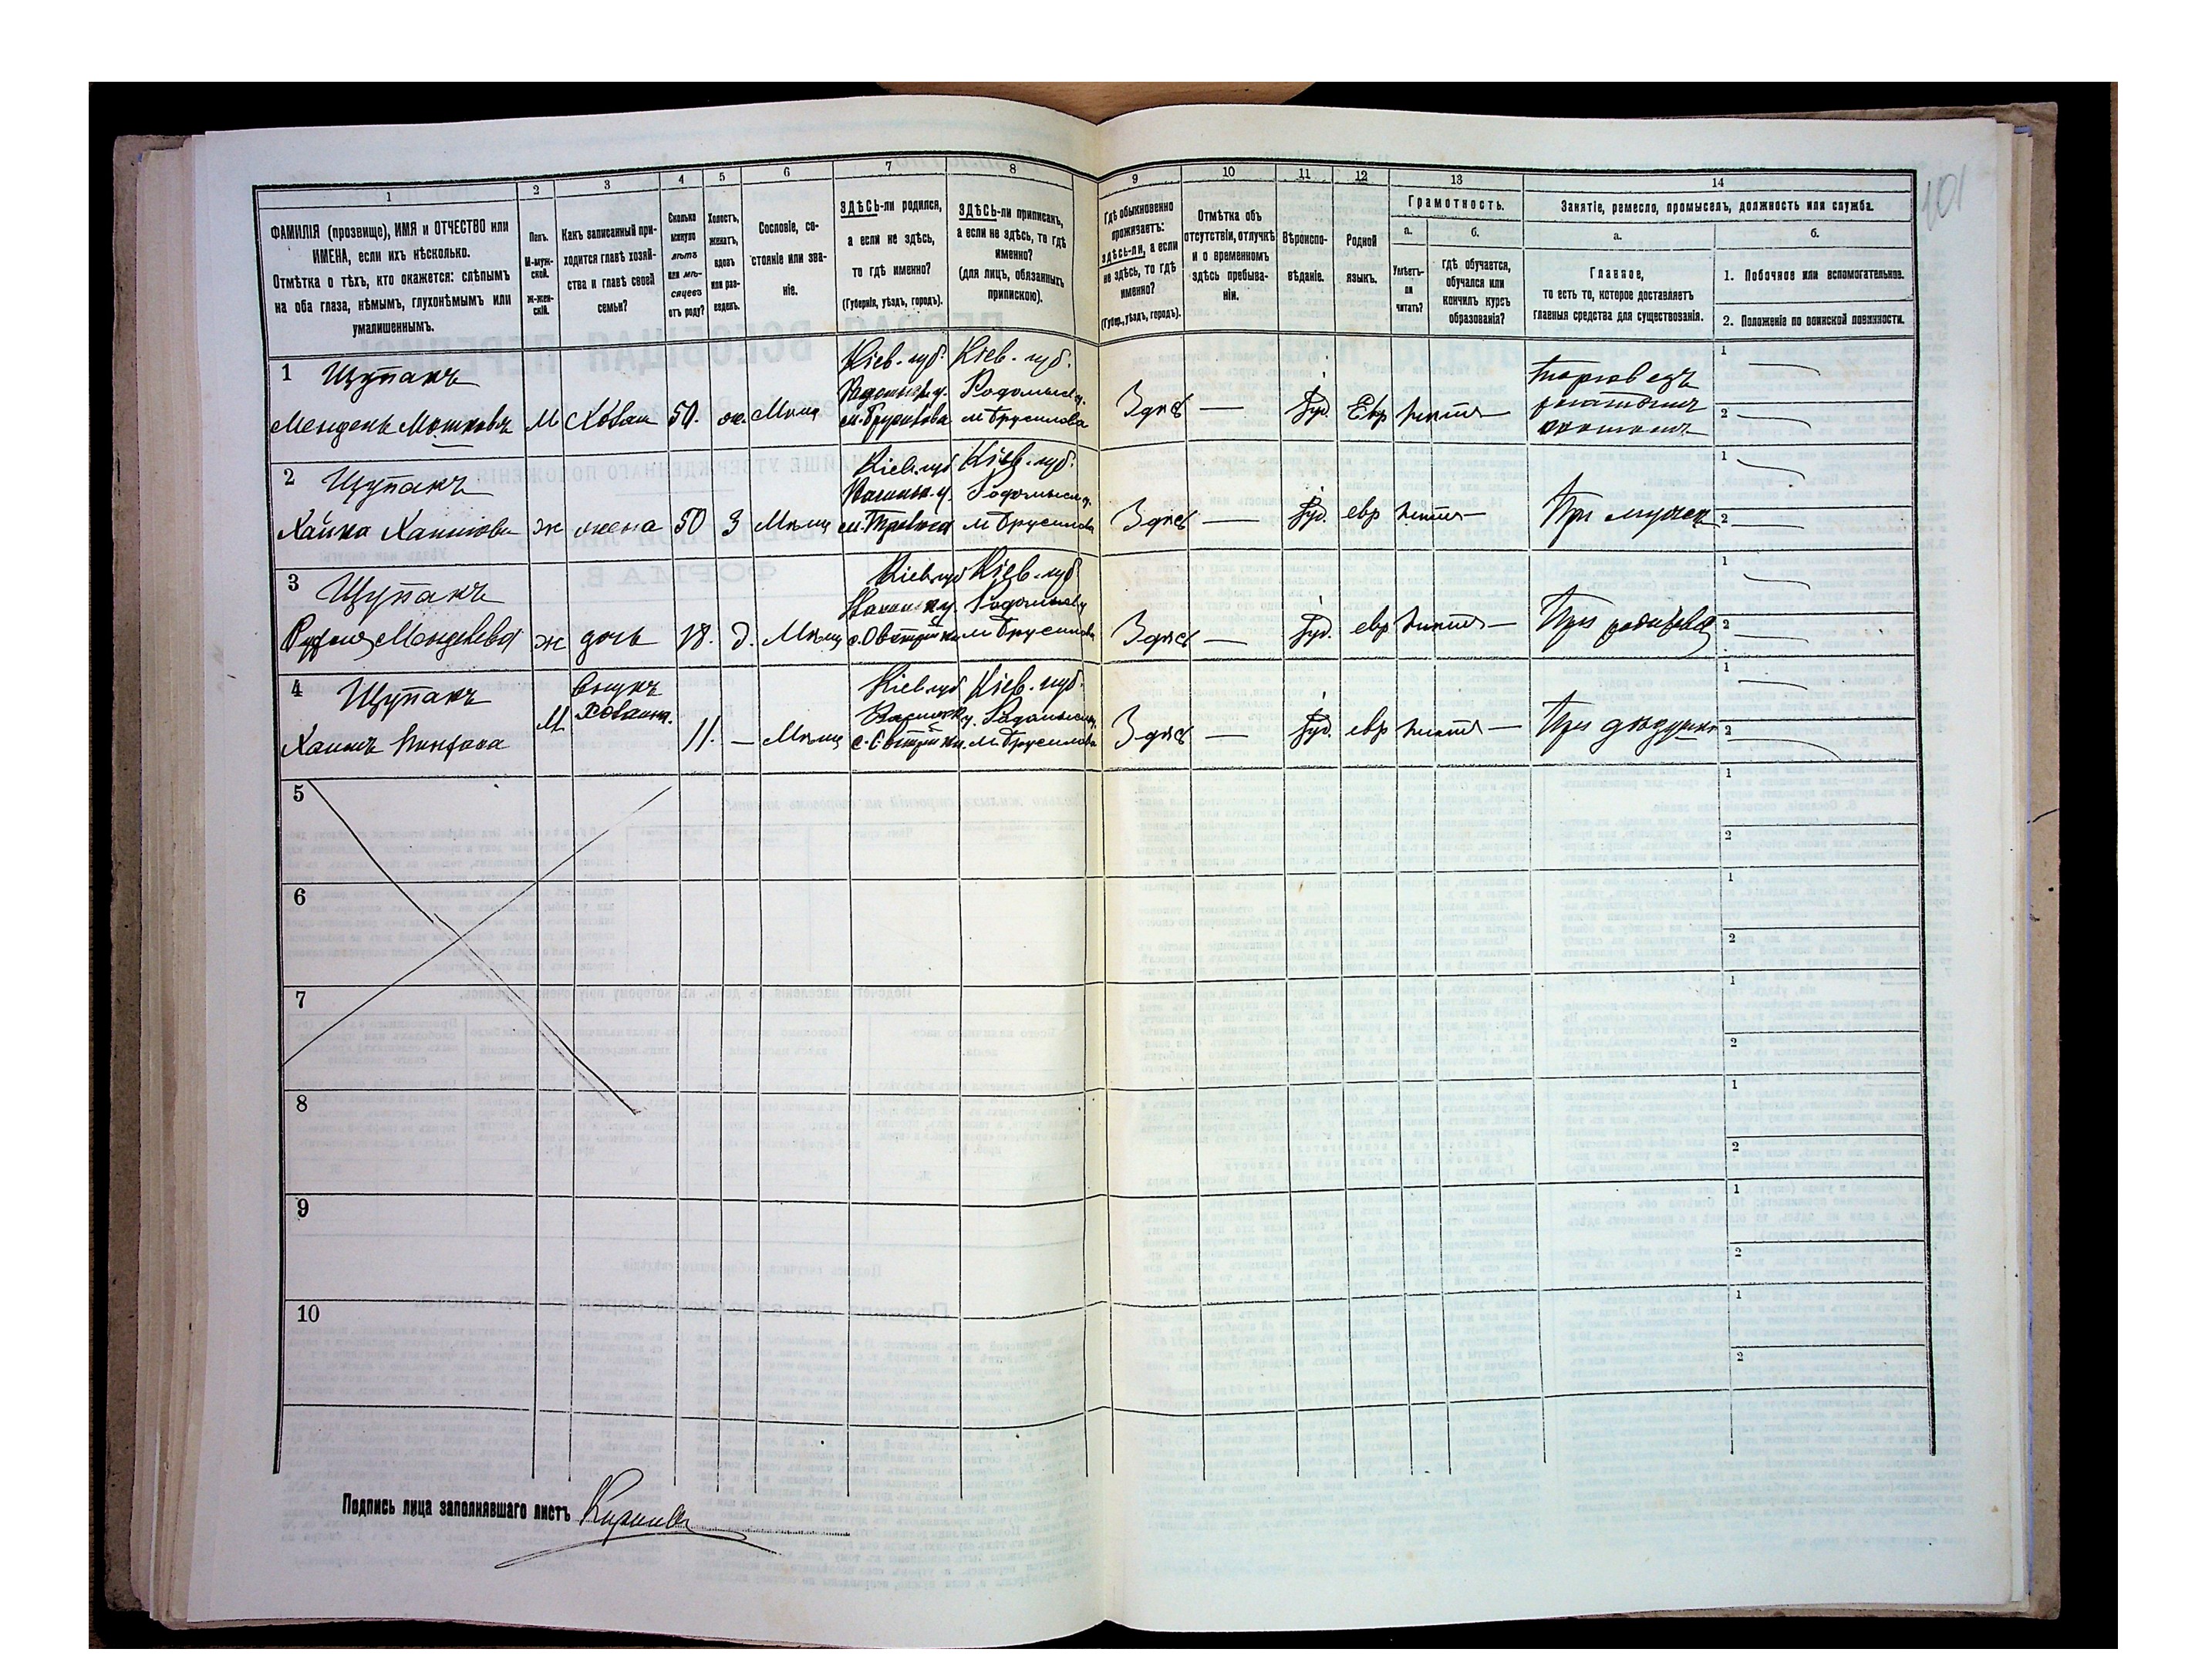 1 2 3 4 5 6 7 8 9 10 11 12 13 14
ФАМИЛІЯ (прозвище), ИМЯ и ОТЧЕСТВО или
ИМЕНА, если ихъ нѣсколько.
Отмѣтка о тѣхъ, кто окажется: слѣпымъ
на оба глаза, нѣмымъ, глухонѣмымъ или
умалишеннымъ.
Полъ.
М-муж-
ской.
Ж-жен-
скій.
Какъ записанный при-
ходится главѣ хозяй-
ства и главѣ своей
семьи?
Сколько
минуло
лѣтъ
или мѣ-
сяцевъ
отъ роду?
Холостъ,
женатъ,
вдовъ
или раз-
веденъ.
Сословіе, со-
стояніе или зва-
ніе.
ЗДѢСЬ-ли родился,
а если не здѣсь,
то гдѣ именно?
(Губернія, уѣздъ, городъ).
ЗДѢСЬ-ли приписанъ,
а если не здѣсь, то гдѣ
именно?
(для лицъ, обязанныхъ
припискою).
Гдѣ обыкновенно
проживаетъ:
здѣсь-ли, а если
не здѣсь, то гдѣ
именно?
(Губер., уѣздъ, городъ).
Отмѣтка объ
отсутствіи, отлучкѣ
и о временномъ
здѣсь пребыва-
ніи.
Вѣроиспо-
вѣданіе.
Родной
языкъ.
Грамотность.
а.
Умѣетъ-
ли
читать?
б.
гдѣ обучается,
обучался или
кончилъ курсъ
образованія?
Занятіе, ремесло, промыселъ, должность или служба.
а.
Главное,
то есть то, которое доставляетъ
главныя средства для существованія.
б.
1. Побочное или вспомогательное.
2. Положеніе по воинской повинности.
101
1 Щупакъ
Мендель Мошковъ М Хозяи 50. ж. Мѣщ
Кіев. губ.
Радомысл. у.
м. Брусилова
Кіев. губ.
Радомысл у.
м Брусилова
Здѣсь — Іуд. Евр —
Торговецъ
1
2
2 Щупакъ
Хайка ж жена 50 З Мѣщ
Кіев. губ
Кіев. губ.
Радомысл у.
м Брусилова
Здѣсь — Іуд. евр — При мужѣ
1
2
3 Щупакъ
Менделева ж дочь 18. д. Мѣщ
Кіев губ
Кіев. губ
Радомысл у
м Брусилова
Здѣсь — Іуд. евр —
При
1
2
4 Щупакъ
Хаимъ М
внукъ
хозяина.
11. — Мѣщ
Кіев губ
Кіев. губ.
Радомысл у.
м. Брусилова
Здѣсь — Іуд. евр — При дѣдушкѣ
1
2
5
1
2
6
1
2
7
1
2
8
1
2
9
1
2
10
1
2
Подпись лица заполнявшаго листъ